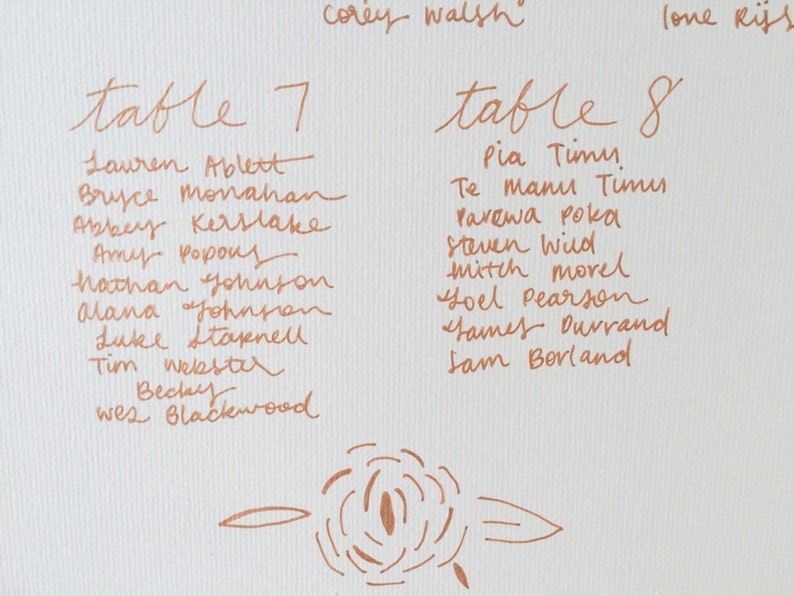 Corey Walsh
Ione Rijs
table 7
Lauren Ablett
Bryce Monahan
Abbey Kerslake
Amy Popovs
Nathan Johnson
Alana Johnson
Luke Starnell
Tim Webster
Becky
Wes Blackwood
table 8
Pia Timu
Te Manu Timu
Parewa Poka
Steven Wild
Mitch Morel
Joel Pearson
James Durrand
Sam Borland